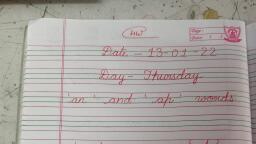 HW
Date - 13-01-22
Day - Thursday
'an' and 'ap' words